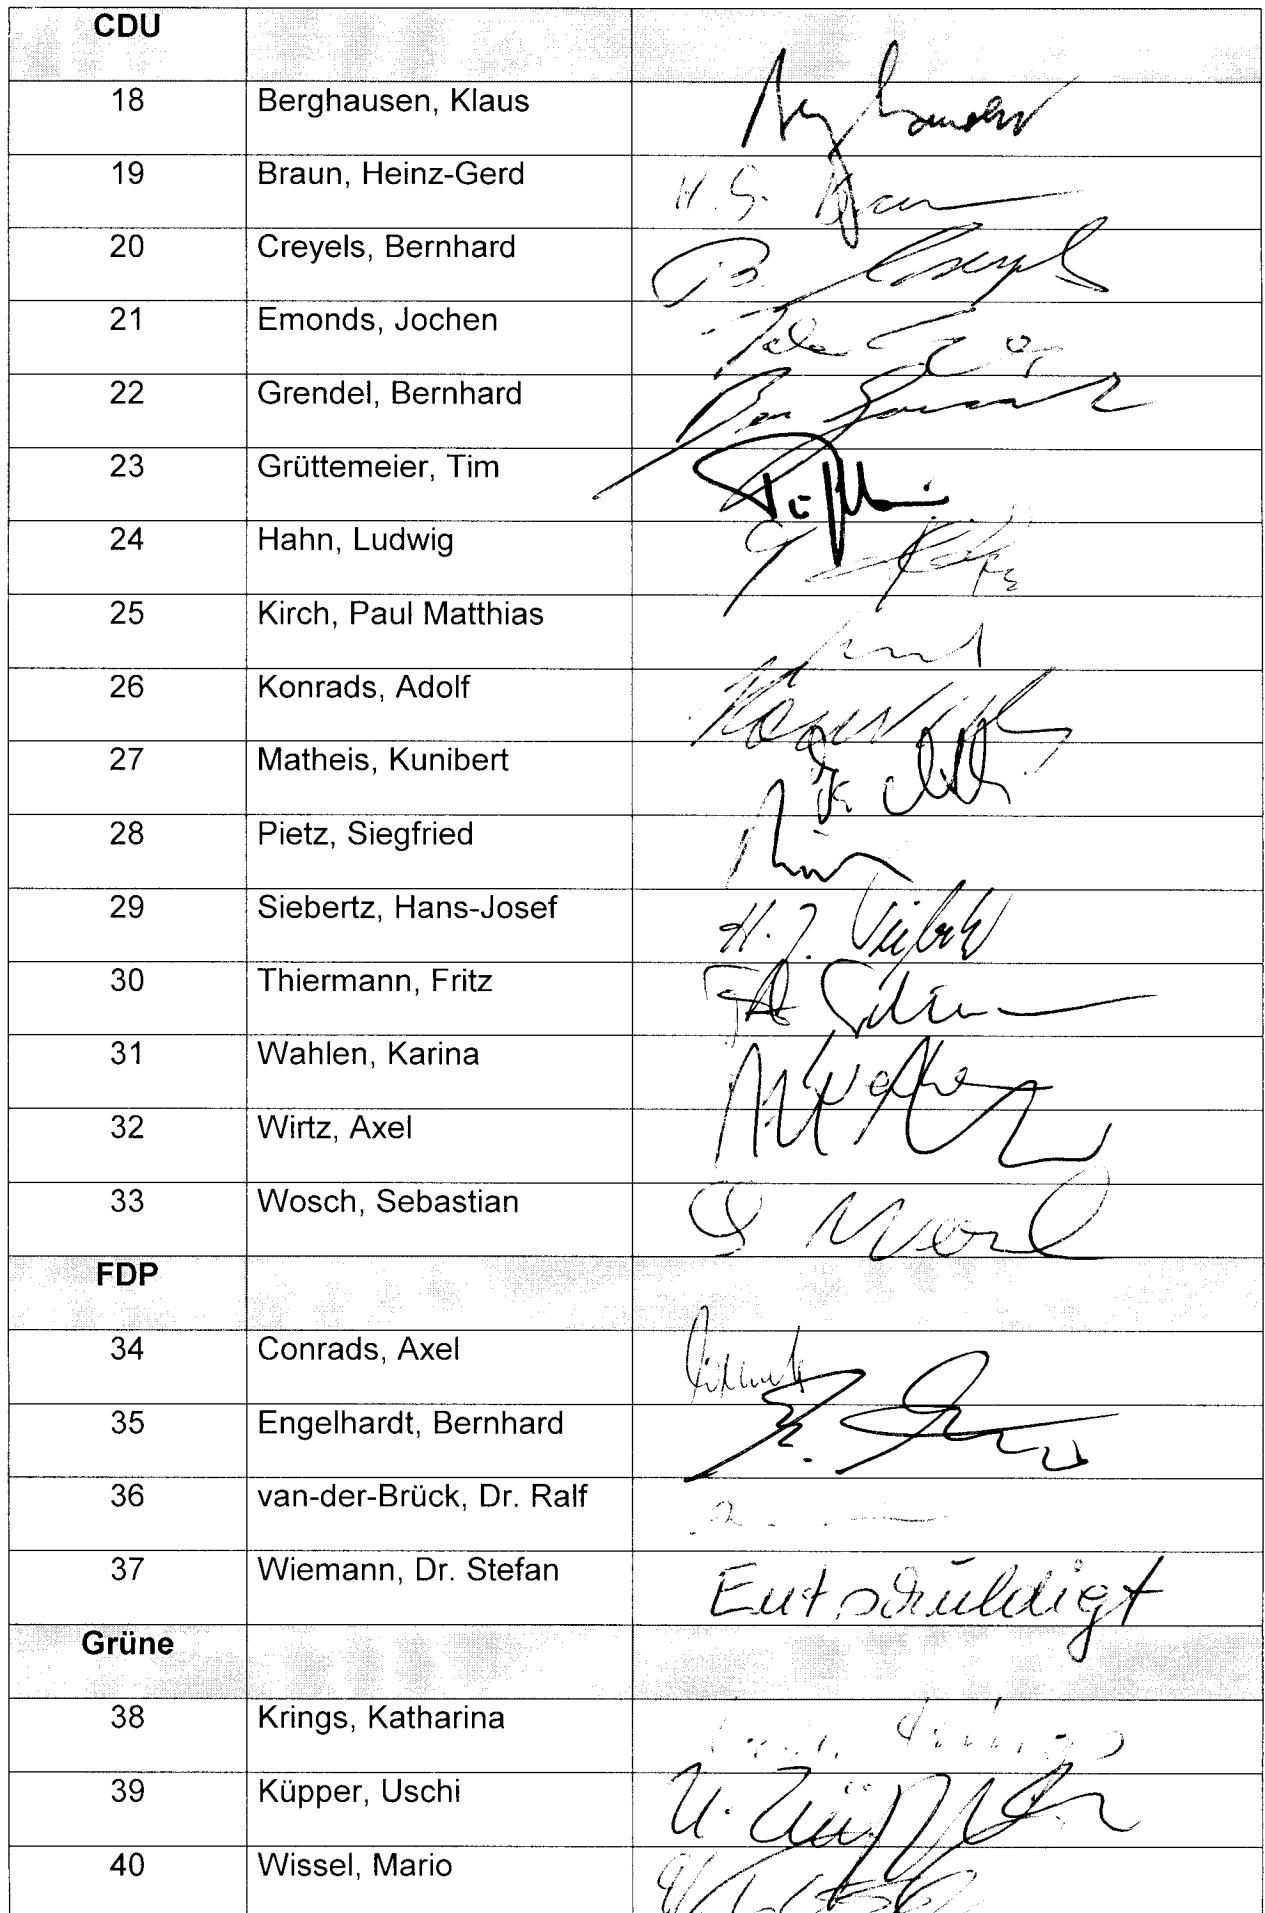 CDU
18 Berghausen, Klaus
19 Braun, Heinz-Gerd H. G. Braun
20 Creyels, Bernhard B. Creyels
21 Emonds, Jochen
22 Grendel, Bernhard
23 Grüttemeier, Tim
24 Hahn, Ludwig
25 Kirch, Paul Matthias
26 Konrads, Adolf
27 Matheis, Kunibert
28 Pietz, Siegfried
29 Siebertz, Hans-Josef H. J.
30 Thiermann, Fritz
31 Wahlen, Karina
32 Wirtz, Axel
33 Wosch, Sebastian
FDP
34 Conrads, Axel
35 Engelhardt, Bernhard
36 van-der-Brück, Dr. Ralf
37 Wiemann, Dr. Stefan Entschuldigt
Grüne
38 Krings, Katharina Krings
39 Küpper, Uschi U. Küpper
40 Wissel, Mario